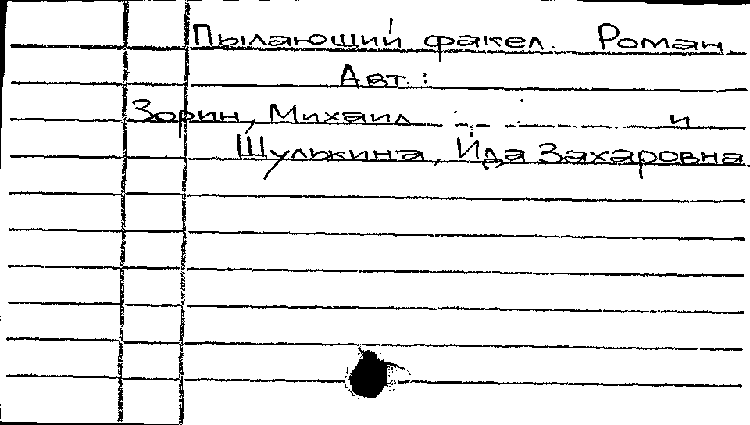 Пылающий факел. Роман.
Авт.:
Зорин, Михаил и
Шулькина, Ида Захаровна